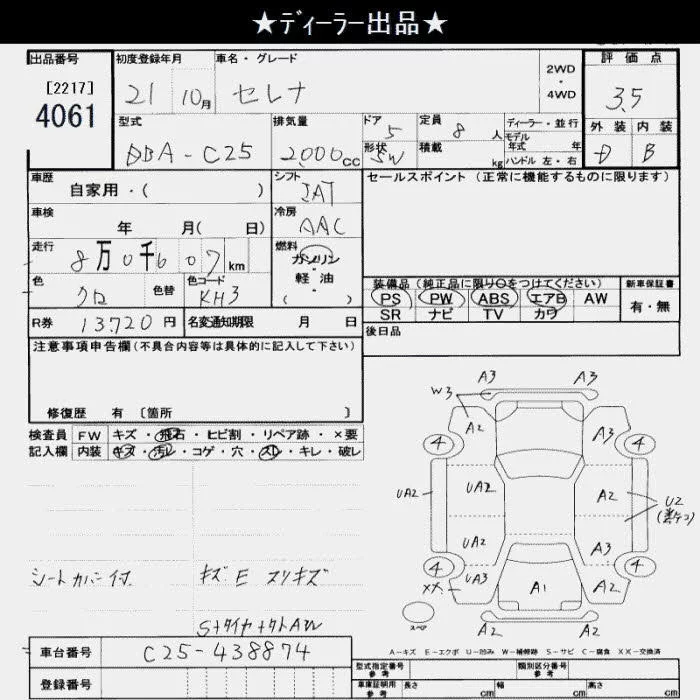 ★ディーラー出品★
出品番号 初度登録年月 車名・グレード 2WD・4WD 評価点
[2217] 4061 21 10月 セレナ 3.5
型式 排気量 ドア 5 定員 8 人 ディーラー・並行 外装 内装
DBA-C25 2000cc 形状 SW 積載 kg モデル年式 年 ハンドル 左・右 D B
車歴 自家用・( ) シフト IAT セールスポイント (正常に機能するものに限ります)
車検 年 月( 日) 冷房 AAC
走行 8万0千607km 燃料 ガソリン・軽油・( )
色 クロ 色替 色コード KH3
装備品 (純正品に限り○をつけてください) 新車保証書
PS PW ABS エアB AW 有・無
SR ナビ TV カワ
R券 13720円 名変通知期限 月 日 後日品
注意事項申告欄 (不具合内容等は具体的に記入して下さい)
修復歴 有 〔箇所 〕
検査員 FW キズ・飛石・ヒビ割・リペア跡・×要
記入欄 内装 キズ・汚レ・コゲ・穴・スレ・キレ・破レ
シートカバー付 キズ E スリキズ
S+タイヤ+ナットAW
A3 A3
W3 A2 A3
4 4
UA2 UA2 A2 U2
UA2 A3
4 4
XX UA3 A1 A2
スペア A2 A2
A-キズ E-エクボ U-凹み W-補修跡 S-サビ C-腐食 XX-交換済
車台番号 C25-438874
登録番号
型式指定番号 参考 類別区分番号 参考
車庫証明用 参考 長さ cm 幅 cm 高さ cm